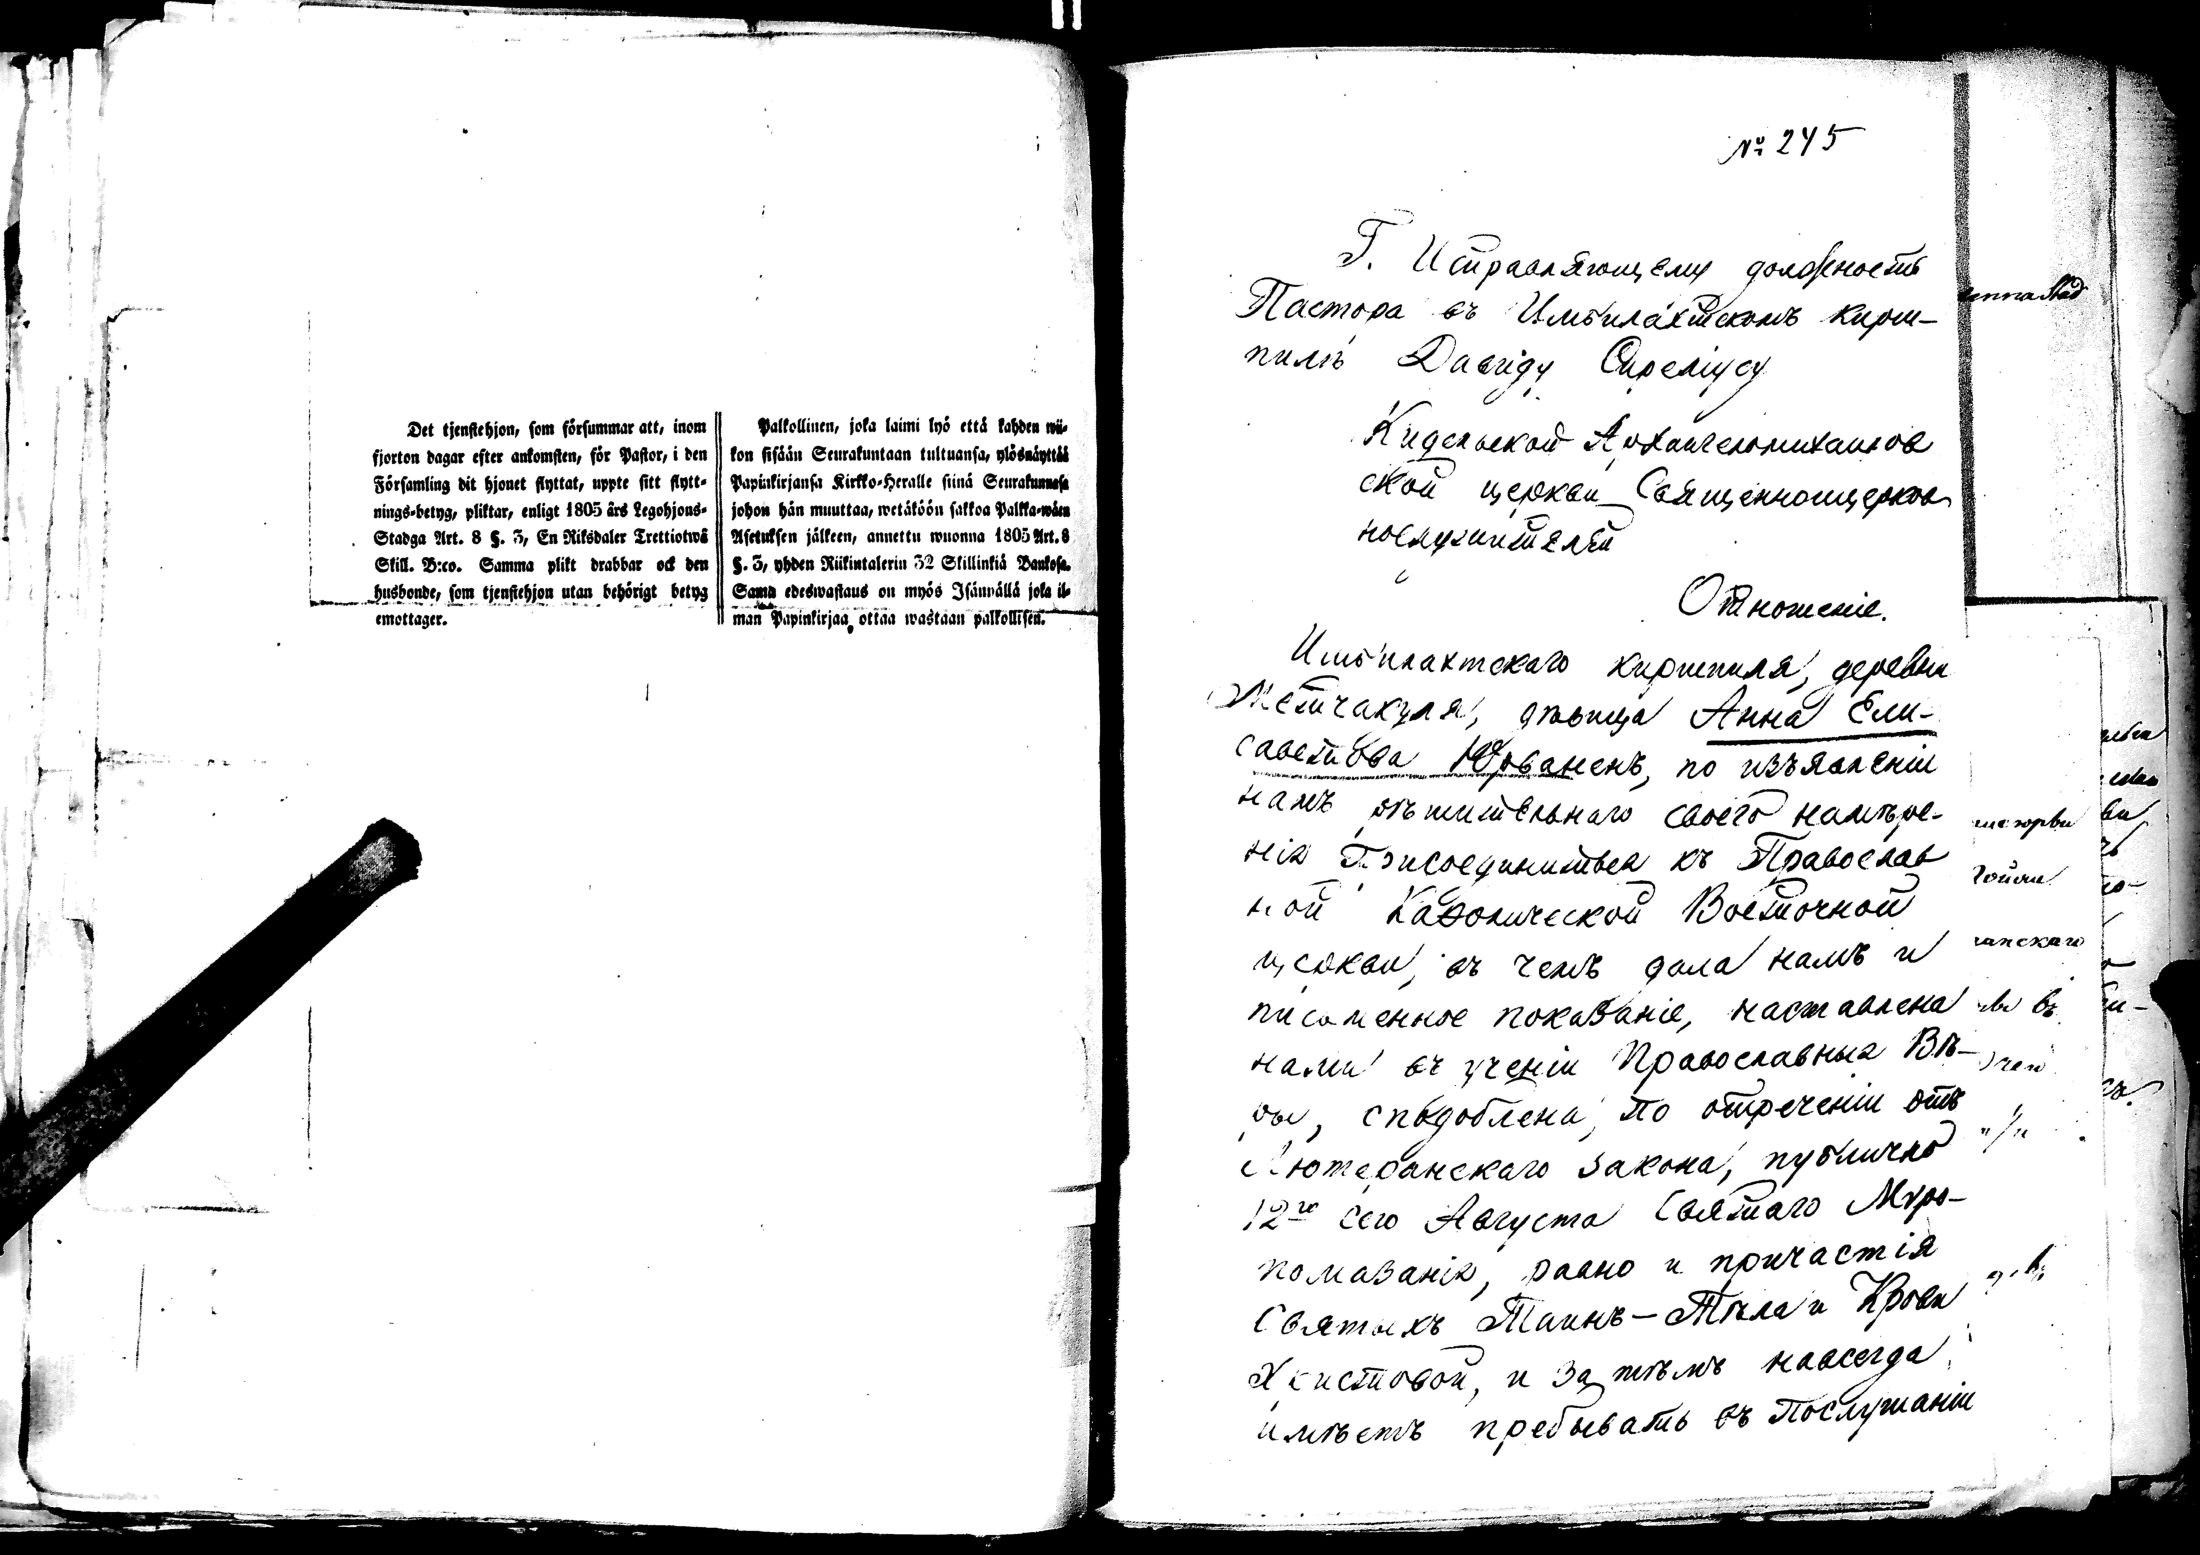 Det tjenstehjon, som försummar att, inom
fjorton dagar efter ankomsten, för Pastor, i den
Församling dit hjonet flyttat, uppte sitt flytt-
nings-betyg, pliktar, enligt 1805 års Legohjons-
Stadga Art. 8 §. 3, En Riksdaler Trettiotwå
Skill. B:co. Samma plikt drabbar ock den
husbonde, som tjenstehjon utan behörigt betyg
emottager.
Palkollinen, joka laimi lyö että kahden wii-
kon sisään Seurakuntaan tultuansa, ylösnäyttää
Papinkirjansa Kirkko-Heralle siinä Seurakunnasa
johon hän muuttaa, wetäköön sakkoa Palkka-wäen
Asetuksen jälkeen, annettu wuonna 1805 Art. 8
§. 3, yhden Riikintalerin 32 Skillinkiä Bankosa.
Sama edeswastaus on myös Isännällä joka il-
man Papinkirjaa ottaa wastaan palkollisen.
№ 245
Г. Исправляющему должность
Пастора въ Импилахтскомъ кирш-
пилѣ Давиду Сиреліусу
Кидельской Архангеломихайлов
ской церкви Священноцерков
нослужителей
Отношеніе.
Импилахтскаго киршпиля, деревни
Метчакуля, дѣвица Анна Ели-
саветова Юрваненъ, по изъявленіи
намъ рѣшительнаго своего намѣре-
нія Присоединиться къ Православ
ной Каѳолической Восточной
церкви, въ чемъ дала намъ и
писменное показаніе, наставлена
нами въ ученіи Православныя Вѣ-
ры, сподоблена, по отреченіи отъ
Лютеранскаго закона, публично
12го сего Августа Святаго Мѵро-
помазанія, равно и причастія
Святыхъ Таинъ - Тѣла и Крови
Христовой, и за тѣмъ навсегда
имѣетъ пребывать въ Послушаніи